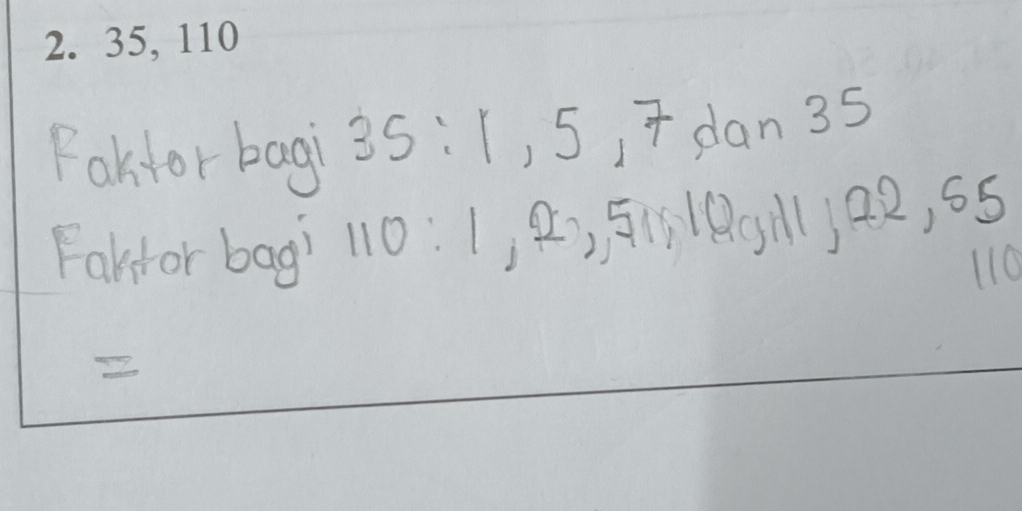 2. 35, 110
Faktor bagi 35 : 1 , 5 , 7 dan 35
Faktor bagi 110 : 1 , 2 , 5 , 10 , 11 , 22 , 55
110
=